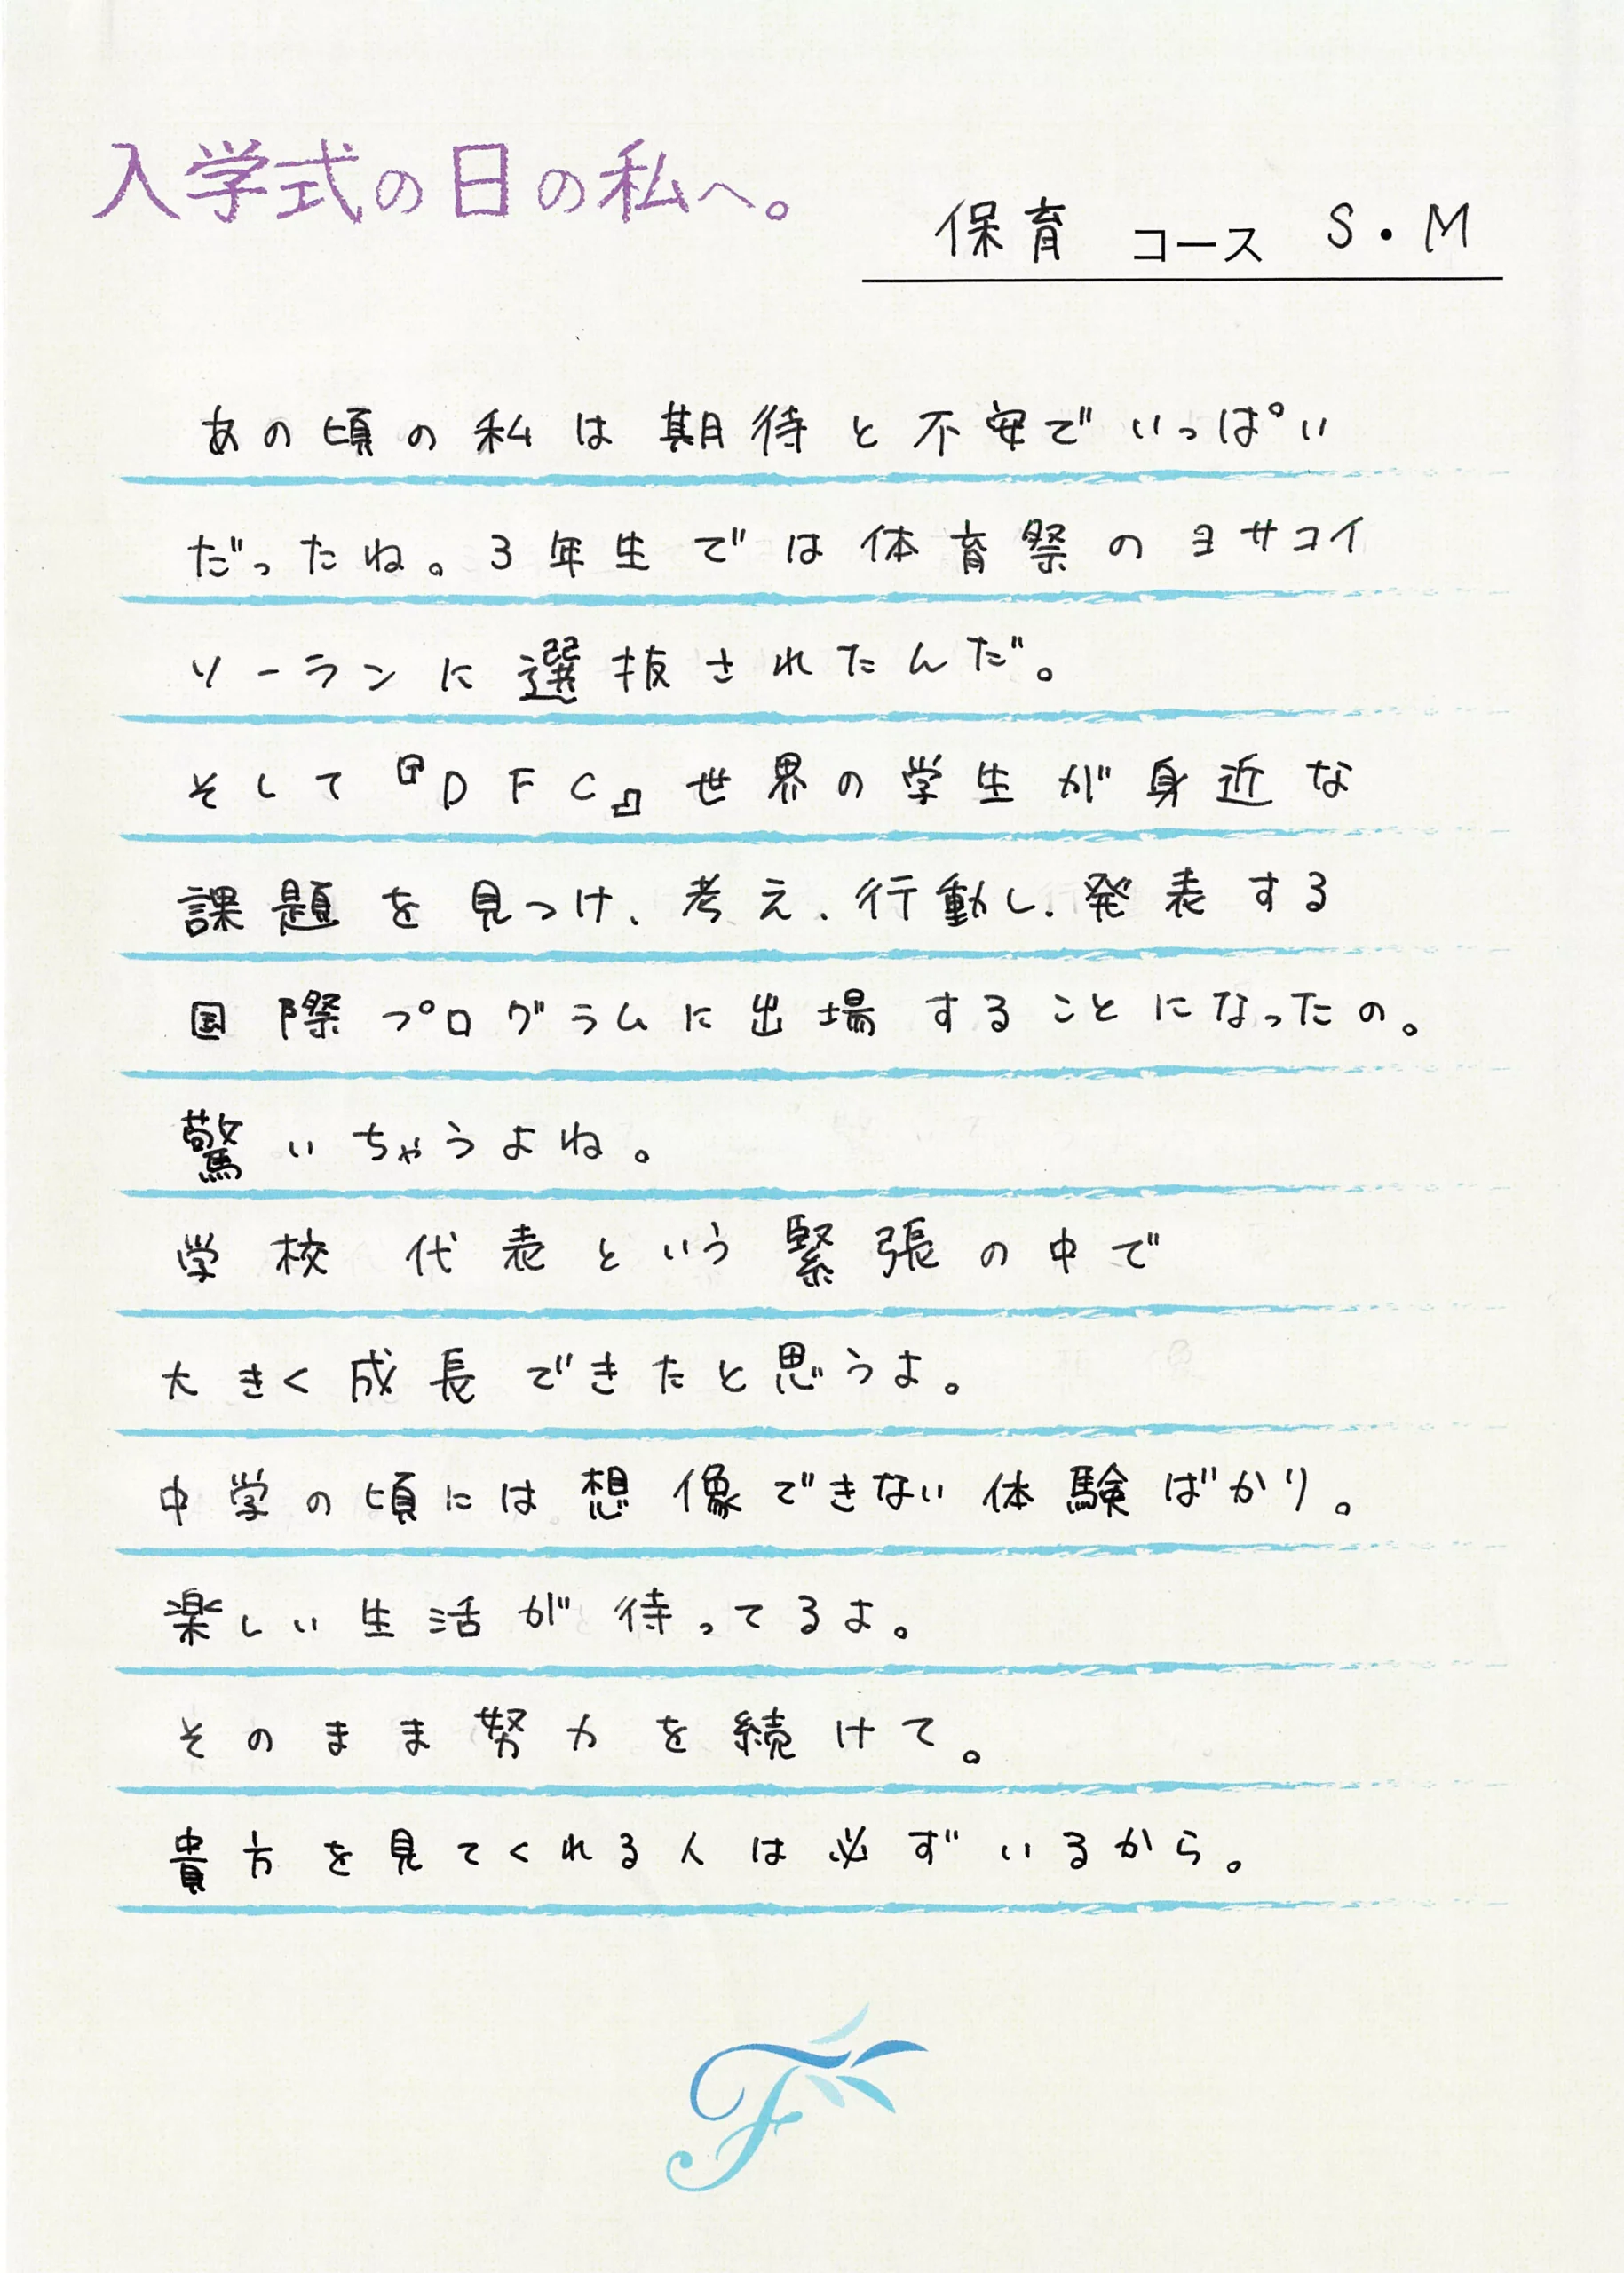 入学式の日の私へ。
保育 コース S・M
あの頃の私は期待と不安でいっぱい
だったね。3年生では体育祭のヨサコイ
ソーランに選抜されたんだ。
そして『DFC』世界の学生が身近な
課題を見つけ、考え、行動し、発表する
国際プログラムに出場することになったの。
驚いちゃうよね。
学校代表という緊張の中で
大きく成長できたと思うよ。
中学の頃には想像できない体験ばかり。
楽しい生活が待ってるよ。
そのまま努力を続けて。
貴方を見てくれる人は必ずいるから。
F